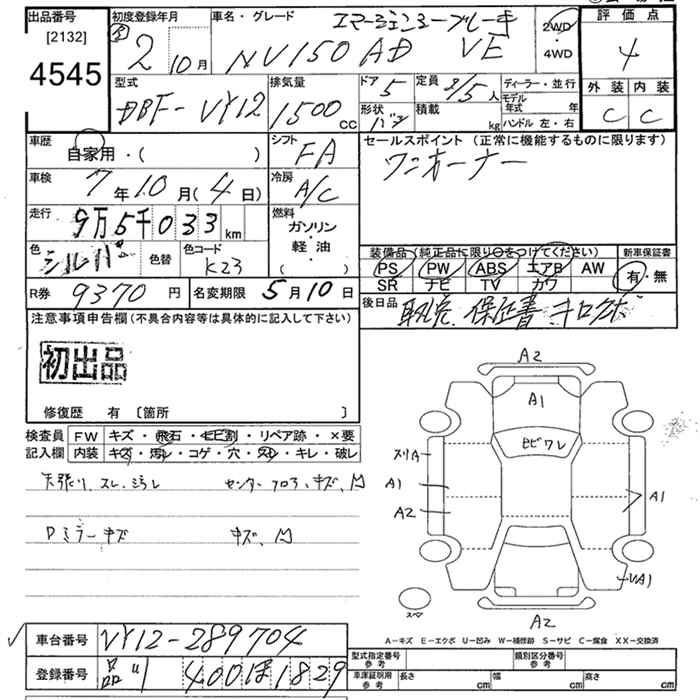 出品番号
[2132]
4545
初度登録年月
2 10月
車名・グレード
エマージェンシーブレーキ
NV150 AD VE
2WD
4WD
評価点
4
外装 内装
C C
型式
DBF-VY12
排気量
1500 CC
ドア 5
形状 バン
定員 2/5人
積載 kg
ディーラー・並行
モデル年式 年
ハンドル 左・右
車歴
自家用・( )
シフト
FA
セールスポイント (正常に機能するものに限ります)
ワンオーナー
車検
7年10月(4日)
冷房
A/C
走行
9万5千033km
燃料
ガソリン
・
軽・油
( )
色
シルバー
色替
色コード
K23
装備品 (純正品に限り○をつけてください)
PS PW ABS エアB AW
SR ナビ TV カワ
新車保証書
有・無
R券 9370円
名変期限 5月10日
後日品
取説 保証書 キロクボ
注意事項申告欄(不具合内容等は具体的に記入して下さい)
初出品
修復歴 有 〔箇所 〕
検査員 FW キズ・飛石・ヒビ割・リペア跡・×要
記入欄 内装 キズ・汚レ・コゲ・穴・スレ・キレ・破レ
天張り、スレ、ヨゴレ センターフロアー キズ、凹
Dミラー キズ キズ、凹
A2
A1
ヒビワレ
スリA
A1
A2
A1
UA1
スペア
A2
A−キズ E−エクボ U−凹み W−補修跡 S−サビ C−腐食 XX−交換済
車台番号 VY12-289704
登録番号 品川 400 ほ 1829
型式指定番号 参考
類別区分番号 参考
車庫証明用 参考
長さ cm
幅 cm
高さ cm